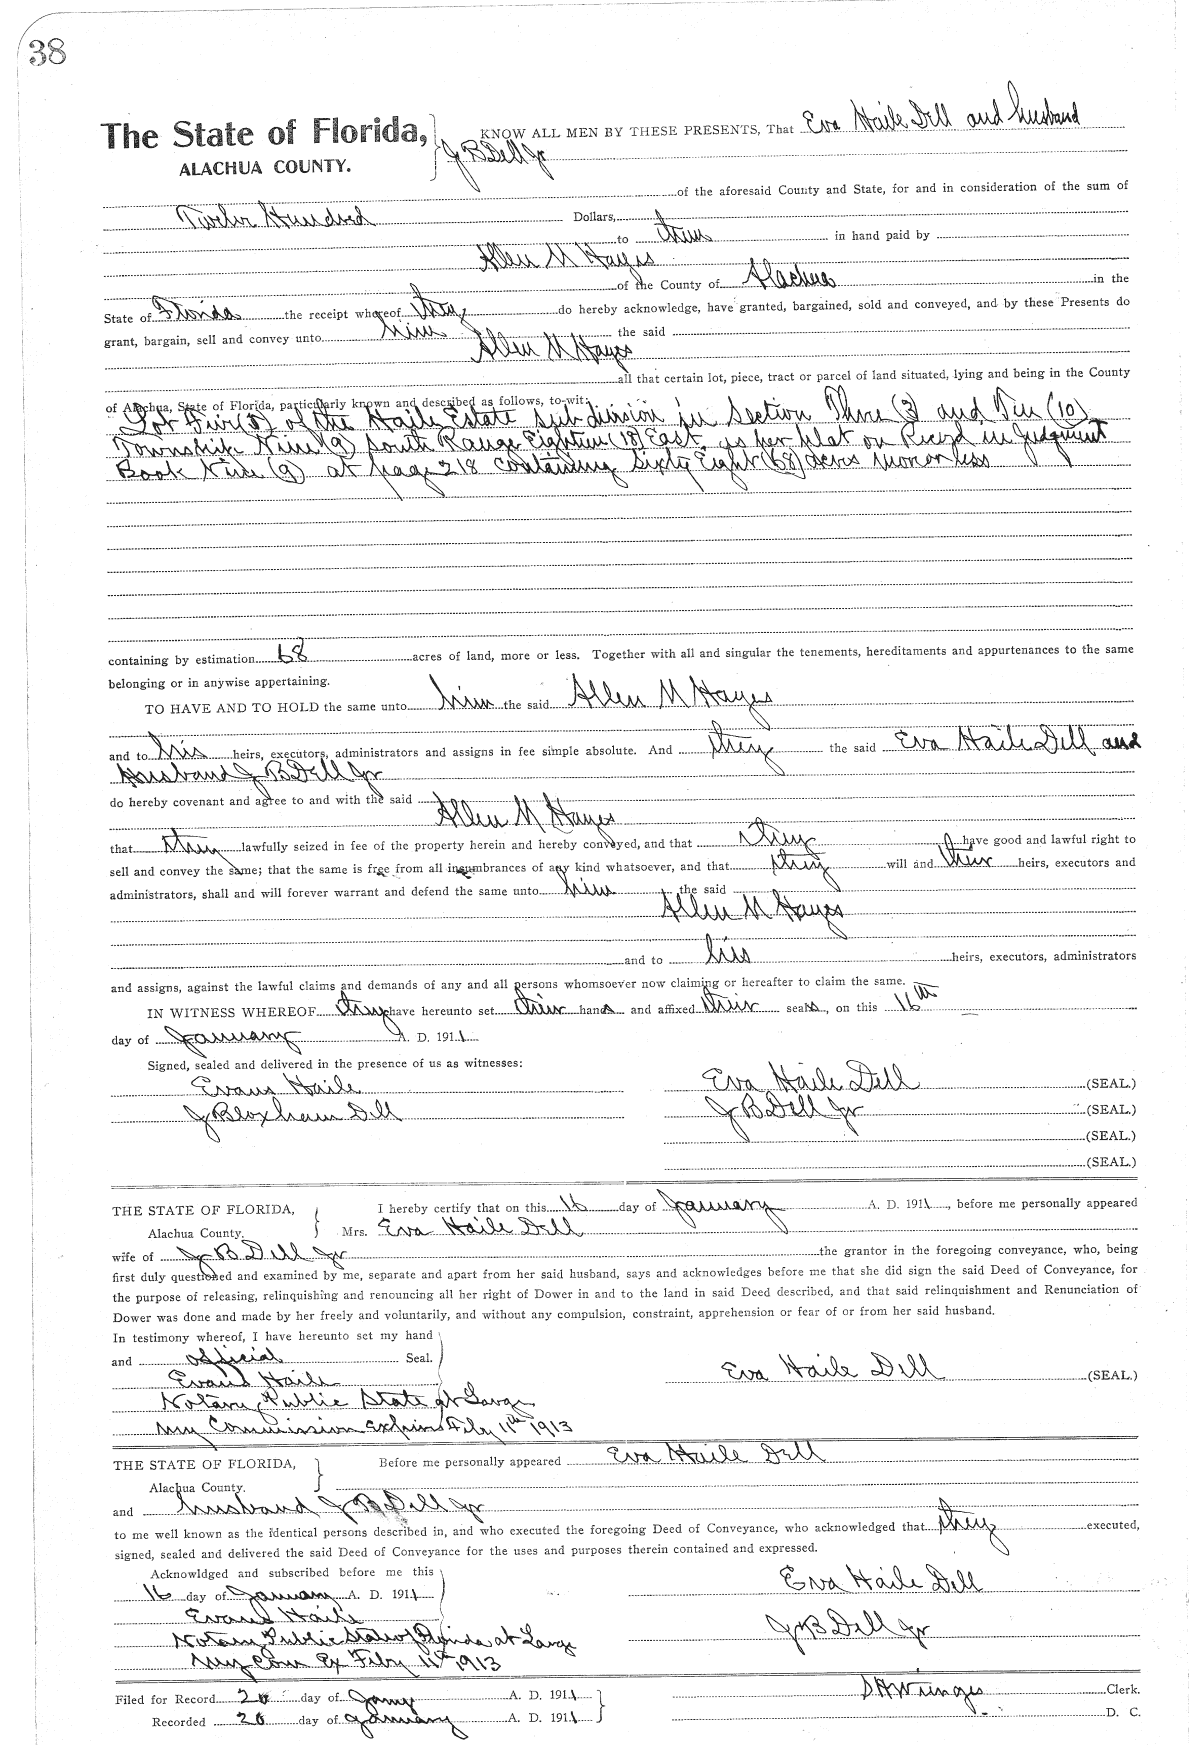 38
The State of Florida, KNOW ALL MEN BY THESE PRESENTS, That Eva Haile Dell and husband
ALACHUA COUNTY. J B Dell Jr
of the aforesaid County and State, for and in consideration of the sum of
Twelve Hundred Dollars,
to them in hand paid by
Allen M Hayes
of the County of Alachua in the
State of Florida the receipt whereof they do hereby acknowledge, have granted, bargained, sold and conveyed, and by these Presents do
grant, bargain, sell and convey unto him the said
Allen M Hayes
all that certain lot, piece, tract or parcel of land situated, lying and being in the County
of Alachua, State of Florida, particularly known and described as follows, to-wit:
Lot Five (5) of the Haile Estate subdivision in Section Three (3) and Ten (10)
Township Nine (9) South Range Eighteen (18) East, as per plat on Record in Judgment
Book Nine (9) at page 218 containing Sixty Eight (68) acres more or less
containing by estimation 68 acres of land, more or less. Together with all and singular the tenements, hereditaments and appurtenances to the same
belonging or in anywise appertaining.
TO HAVE AND TO HOLD the same unto him the said Allen M Hayes
and to his heirs, executors, administrators and assigns in fee simple absolute. And they the said Eva Haile Dell and
Husband J B Dell Jr
do hereby covenant and agree to and with the said
Allen M Hayes
that they lawfully seized in fee of the property herein and hereby conveyed, and that they have good and lawful right to
sell and convey the same; that the same is free from all incumbrances of any kind whatsoever, and that they will and their heirs, executors and
administrators, shall and will forever warrant and defend the same unto him the said
Allen M Hayes
and to his heirs, executors, administrators
and assigns, against the lawful claims and demands of any and all persons whomsoever now claiming or hereafter to claim the same.
IN WITNESS WHEREOF they have hereunto set their hands and affixed their seals, on this 16th
day of January A. D. 1911
Signed, sealed and delivered in the presence of us as witnesses:
Evans Haile Eva Haile Dell (SEAL.)
J Bloxham Dell J B Dell Jr (SEAL.)
(SEAL.)
(SEAL.)
THE STATE OF FLORIDA, I hereby certify that on this 16 day of January A. D. 1911, before me personally appeared
Alachua County. Mrs. Eva Haile Dell
wife of J B Dell Jr the grantor in the foregoing conveyance, who, being
first duly questioned and examined by me, separate and apart from her said husband, says and acknowledges before me that she did sign the said Deed of Conveyance, for
the purpose of releasing, relinquishing and renouncing all her right of Dower in and to the land in said Deed described, and that said relinquishment and Renunciation of
Dower was done and made by her freely and voluntarily, and without any compulsion, constraint, apprehension or fear of or from her said husband.
In testimony whereof, I have hereunto set my hand
and official Seal.
Evans Haile Eva Haile Dell (SEAL.)
Notary Public State at Large
My Commission Expires Feby 11th 1913
THE STATE OF FLORIDA, Before me personally appeared Eva Haile Dell
Alachua County.
and husband J B Dell Jr
to me well known as the identical persons described in, and who executed the foregoing Deed of Conveyance, who acknowledged that they executed,
signed, sealed and delivered the said Deed of Conveyance for the uses and purposes therein contained and expressed.
Acknowldged and subscribed before me this
16 day of January A. D. 1911 Eva Haile Dell
Evans Haile
Notary Public State of Florida at Large J B Dell Jr
My Com Ex Feby 11th 1913
Filed for Record 20 day of Jany A. D. 1911 S H Wienges Clerk.
Recorded 20 day of January A. D. 1911 D. C.